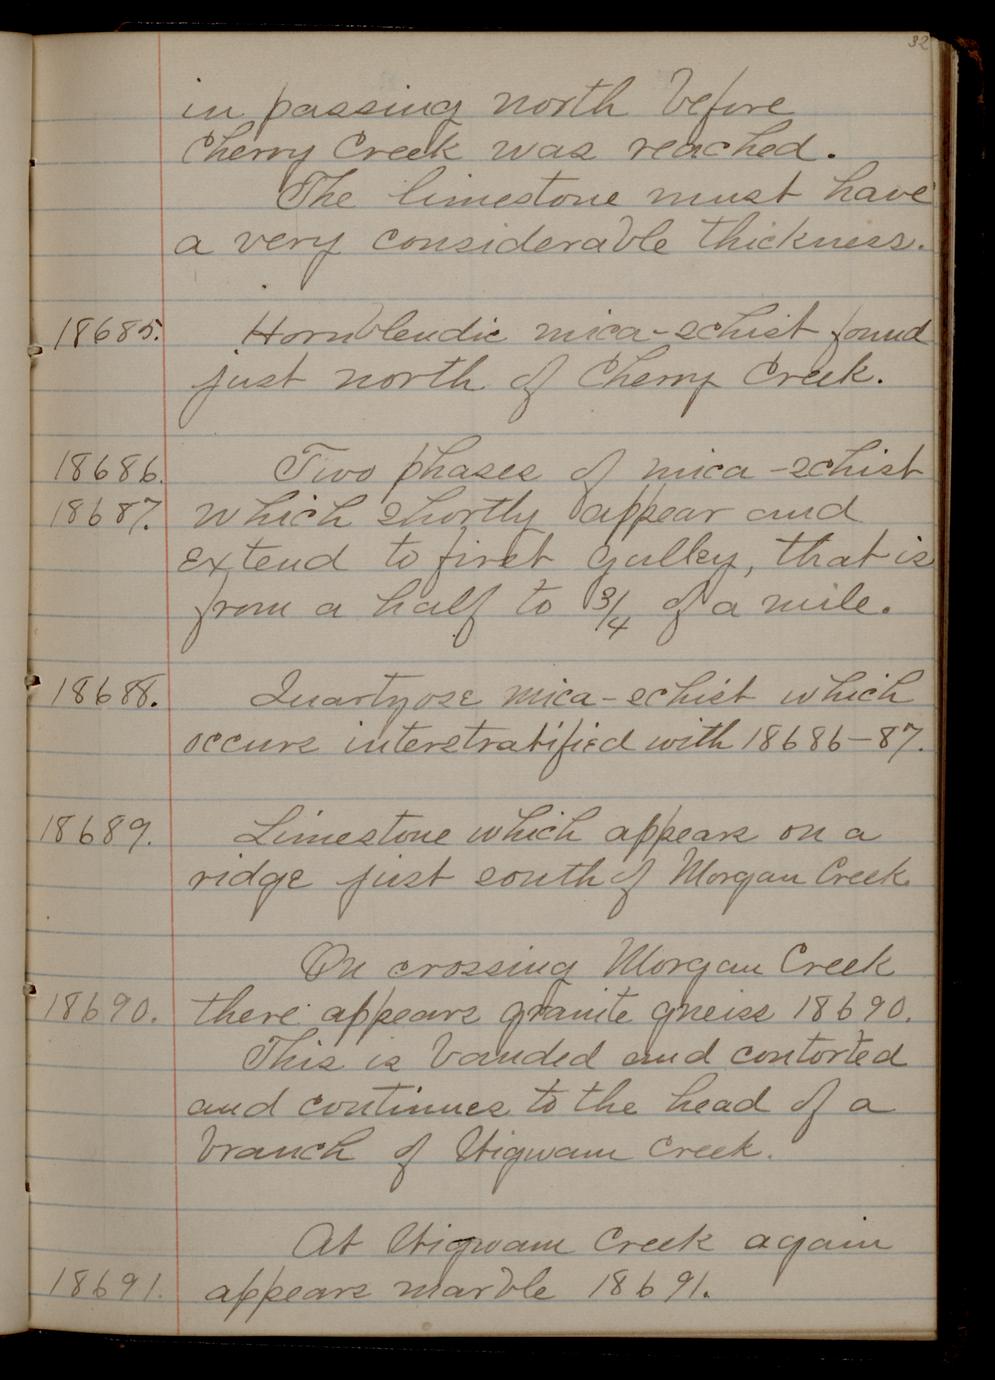 32
in passing north before
Cherry Creek was reached.
The limestone must have
a very considerable thickness.
18685. Hornblendic mica-schist found
just north of Cherry Creek.
18686. Two phases of mica-schist
18687. which shortly appear and
extend to first gulley, that is
from a half to 3/4 of a mile.
18688. Quartzose mica-schist which
occurs interstratified with 18686-87.
18689. Limestone which appears on a
ridge just south of Morgan Creek.
On crossing Morgan Creek
18690. there appears granite gneiss 18690.
This is banded and contorted
and continues to the head of a
branch of Wigwam Creek.
At Wigwam Creek again
18691. appears marble 18691.